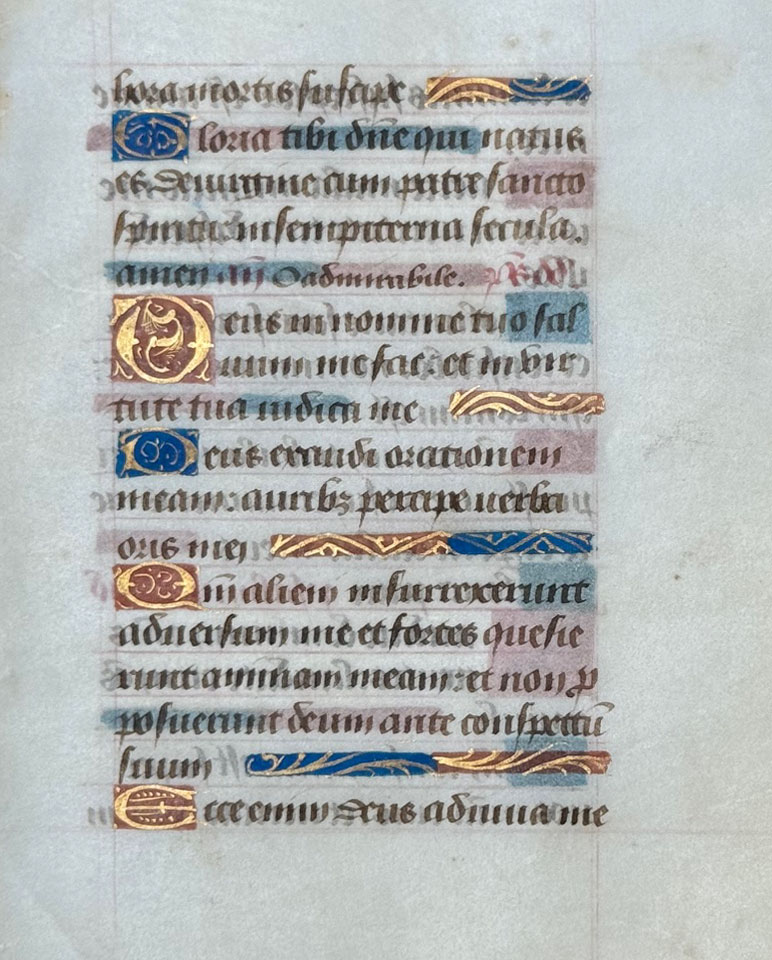 hora mortis suscipe
Gloria tibi dñe qui natus
es de virgine cum patre sancto
spiritu in sempiterna secula.
amen añ O admirabile. ps
Deus in nomine tuo sal
uum me fac: et in vir
tute tua iudica me
Deus exaudi orationem
meam: auribꝫ percipe uerba
oris mei
Qm̃ alieni insurrexerunt
aduersum me et fortes quesie
runt animam meam: et non p
posuerunt deum ante conspectũ
suum
Ecce enim deus adiuua me